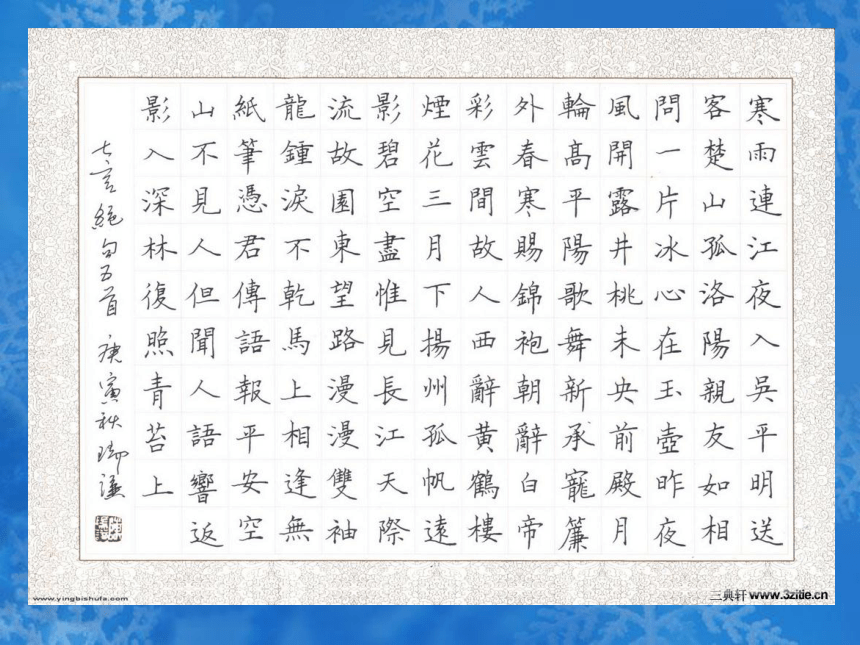 寒雨連江夜入吳平明送
客楚山孤洛陽親友如相
問一片冰心在玉壺昨夜
風開露井桃未央前殿月
輪髙平陽歌舞新承寵簾
外春寒賜錦袍朝辭白帝
彩雲間故人西辭黄鶴樓
煙花三月下揚州孤帆遠
影碧空盡惟見長江天際
流故園東望路漫漫雙袖
龍鍾淚不乾馬上相逢無
紙筆憑君傳語報平安空
山不見人但聞人語響返
影入深林復照青苔上
七言絕句五首 庚寅秋
www.yingbishufa.com
三典轩 www.3zitie.cn